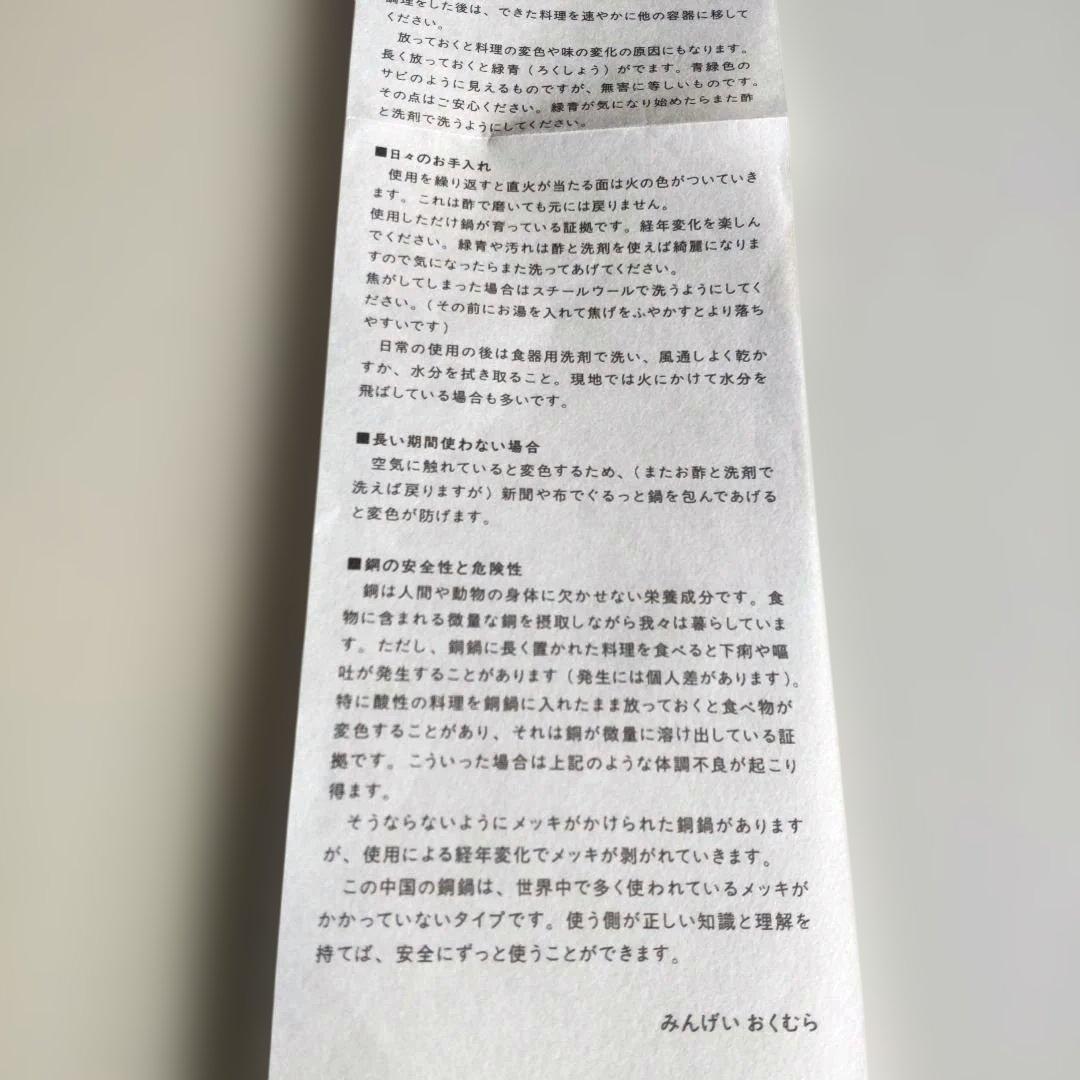 調理をした後は、できた料理を速やかに他の容器に移して
ください。
放っておくと料理の変色や味の変化の原因にもなります。
長く放っておくと緑青（ろくしょう）がでます。青緑色の
サビのように見えるものですが、無害に等しいものです。
その点はご安心ください。緑青が気になり始めたらまた酢
と洗剤で洗うようにしてください。
■日々のお手入れ
使用を繰り返すと直火が当たる面は火の色がついていき
ます。これは酢で磨いても元には戻りません。
使用しただけ鍋が育っている証拠です。経年変化を楽しん
でください。緑青や汚れは酢と洗剤を使えば綺麗になりま
すので気になったらまた洗ってあげてください。
焦がしてしまった場合はスチールウールで洗うようにしてく
ださい。（その前にお湯を入れて焦げをふやかすとより落ち
やすいです）
日常の使用の後は食器用洗剤で洗い、風通しよく乾か
すか、水分を拭き取ること。現地では火にかけて水分を
飛ばしている場合も多いです。
■長い期間使わない場合
空気に触れていると変色するため、（またお酢と洗剤で
洗えば戻りますが）新聞や布でぐるっと鍋を包んであげる
と変色が防げます。
■銅の安全性と危険性
銅は人間や動物の身体に欠かせない栄養成分です。食
物に含まれる微量な銅を摂取しながら我々は暮らしていま
す。ただし、銅鍋に長く置かれた料理を食べると下痢や嘔
吐が発生することがあります（発生には個人差があります）。
特に酸性の料理を銅鍋に入れたまま放っておくと食べ物が
変色することがあり、それは銅が微量に溶け出している証
拠です。こういった場合は上記のような体調不良が起こり
得ます。
そうならないようにメッキがかけられた銅鍋があります
が、使用による経年変化でメッキが剥がれていきます。
この中国の銅鍋は、世界中で多く使われているメッキが
かかっていないタイプです。使う側が正しい知識と理解を
持てば、安全にずっと使うことができます。
みんげい おくむら